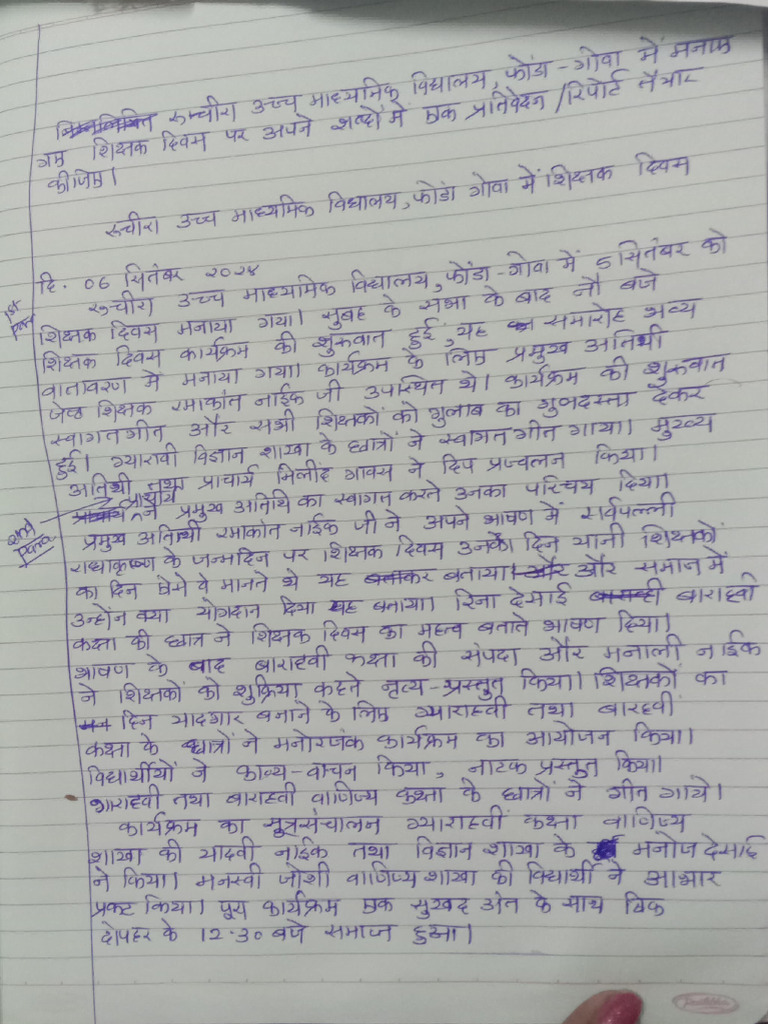 रूचीरा उच्च माध्यमिक विद्यालय, फोंडा-गोवा में मनाए
गए शिक्षक दिवस पर अपने शब्दों में एक प्रतिवेदन/रिपोर्ट तैयार
कीजिए।
रूचीरा उच्च माध्यमिक विद्यालय, फोंडा गोवा में शिक्षक दिवस
दि. ०६ सितंबर २०२४
1st para
रूचीरा उच्च माध्यमिक विद्यालय, फोंडा-गोवा में 5 सितंबर को
शिक्षक दिवस मनाया गया। सुबह के सभा के बाद नौ बजे
शिक्षक दिवस कार्यक्रम की शुरूवात हुई, यह समारोह भव्य
वातावरण में मनाया गया। कार्यक्रम के लिए प्रमुख अतिथी
जेष्ठ शिक्षक रमाकांत नाईक जी उपस्थित थे। कार्यक्रम की शुरूवात
स्वागतगीत और सभी शिक्षकों को गुलाब का गुलदस्ता देकर
हुई। ग्यारावी विज्ञान शाखा के छात्रों ने स्वागत गीत गाया। मुख्य
अतिथी तथा प्राचार्य मिलींद गावस ने दिप प्रज्वलन किया।
2nd para
प्राचार्य ने प्रमुख अतिथि का स्वागत करते उनका परिचय दिया।
प्रमुख अतिथी रमाकांत नाईक जी ने अपने भाषण में सर्वपल्ली
राधाकृष्ण के जन्मदिन पर शिक्षक दिवस उनका दिन यानी शिक्षकों
का दिन ऐसे वे मानते थे यह बताया। और समाज में
उन्होंन क्या योगदान दिया यह बताया। रिना देसाई बाराहवी
कक्षा की छात्र ने शिक्षक दिवस का महत्व बताते भाषण दिया।
भाषण के बाद बाराहवी कक्षा की संपदा और मनाली नाईक
ने शिक्षकों को शुक्रिया कहते नृत्य-प्रस्तुत किया। शिक्षकों का
दिन यादगार बनाने के लिए ग्याराहवी तथा बारहवीं
कक्षा के छात्रों ने मनोरजंक कार्यक्रम का आयोजन किया।
विद्यार्थीयों ने काव्य-वाचन किया, नाटक प्रस्तुत किया।
ग्याराहवी तथा बाराहवी वाणिज्य कक्षा के छात्रों ने गीत गाये।
कार्यक्रम का सूत्रसंचालन ग्याराहवीं कक्षा वाणिज्य
शाखा की यादवी नाईक तथा विज्ञान शाखा के मनोज देसाई
ने किया। मनस्वी जोशी वाणिज्य शाखा की विद्यार्थी ने आभार
प्रकट किया। पूरा कार्यक्रम एक सुखद अंत के साथ ठिक
दोपहर के 12.30 बजे समाप्त हुआ।